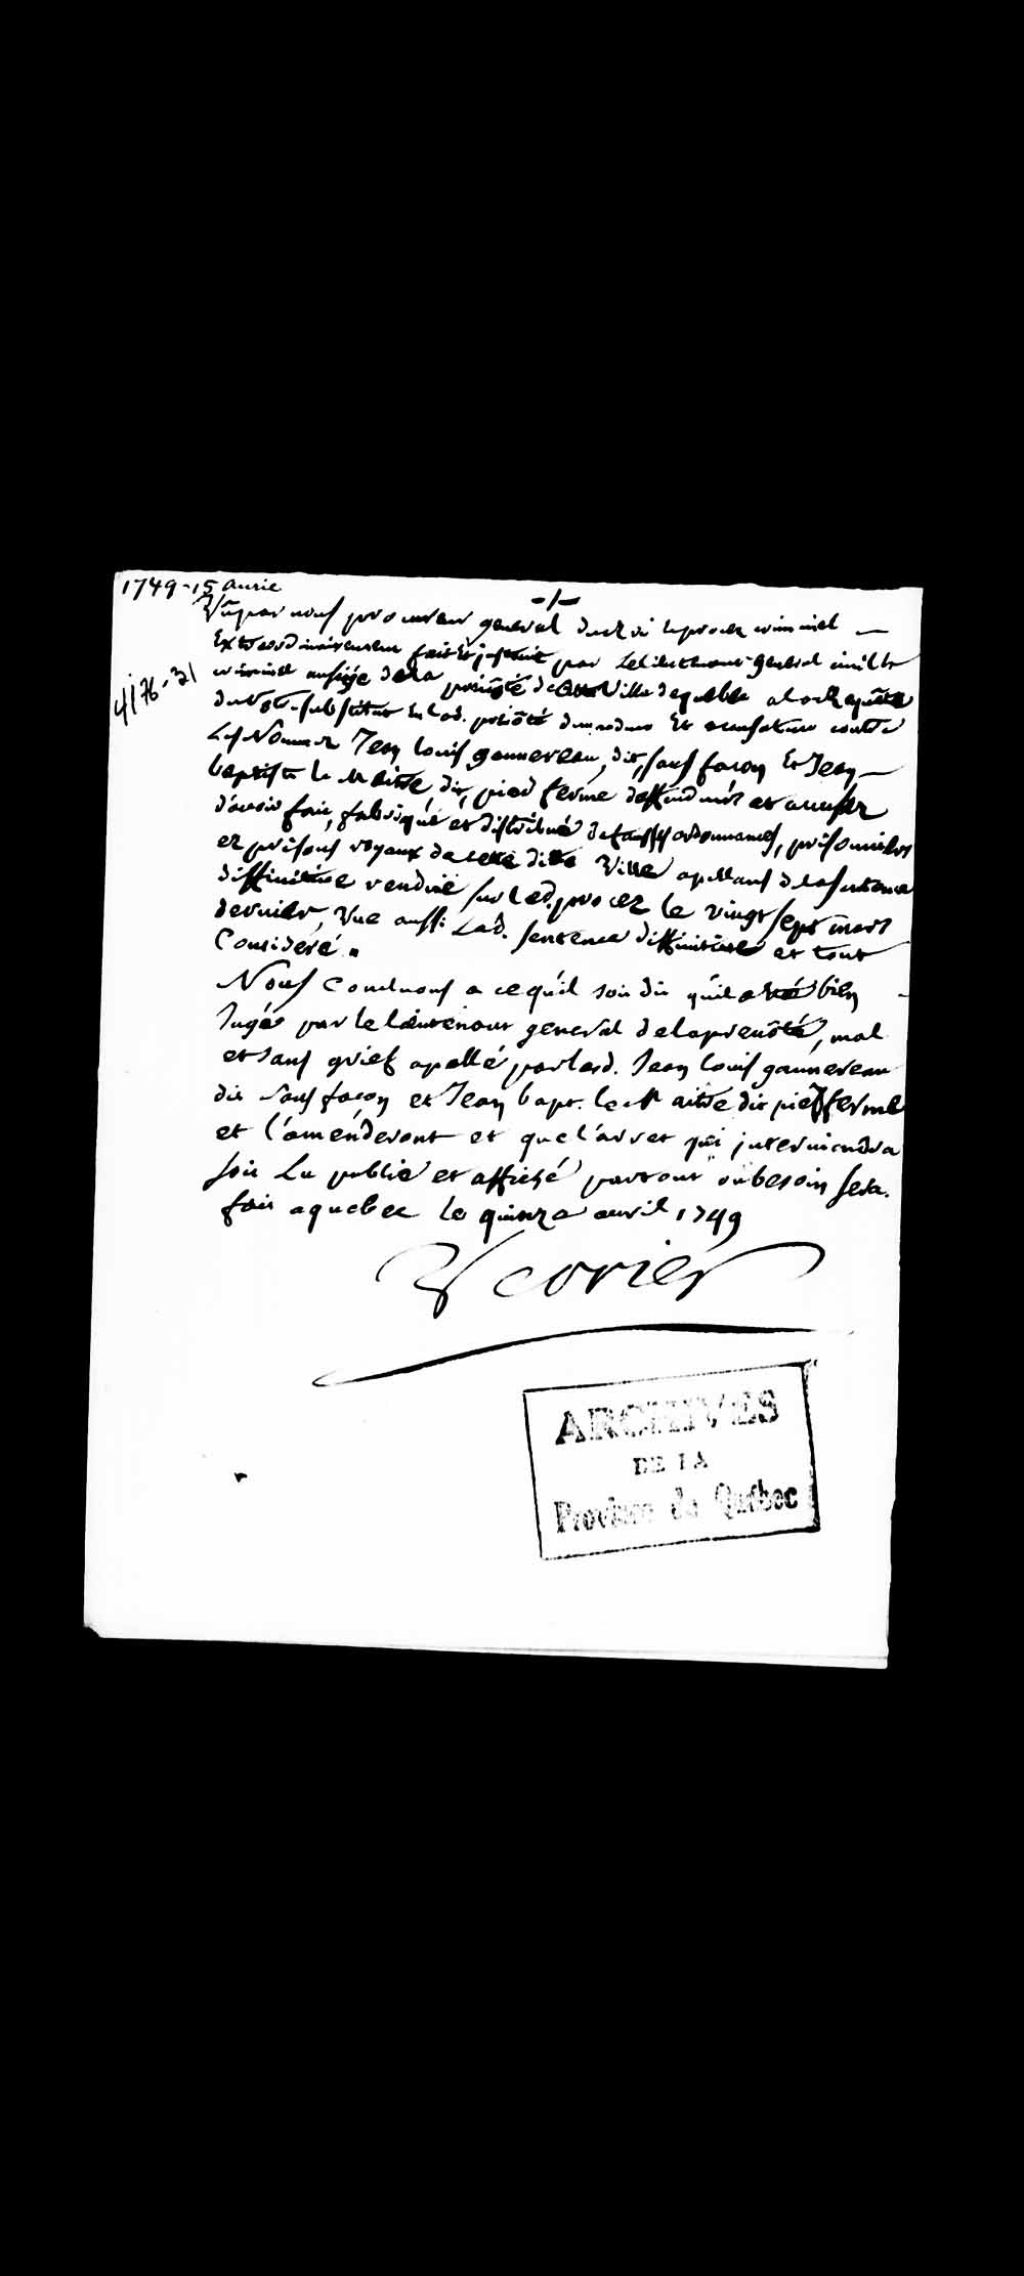 1749-15 avril
-1-
4176-31
Vû par nous procureur general du Roi le procez criminel
Extraordinairement fait et instruit par Le lieutenant general civil et
criminel au siége de la prevôté de cette Ville de quebec a la Requête
du substitut en lad. prevôté demandeur Et accusateur contre
Les Nommez Jean louis gaunereau, dit, sans façon Et Jean
baptiste le Maitre dit, pied ferme deffendeurs et accusez
d'avoir fait, fabriqué et distribué de fausses ordonnances, prisonniers
ez prisons royaux de cette ditte Ville apellans de la sentence
diffinitive rendüe sur led. procez le vingt sept mars
dernier, Vue aussi Lad. sentence diffinitive et tout
Consideré.
Nous Concluons a ce qu'il soit dit qu'il a été bien
Jugé par le lieutenant general de la prevôté, mal
et sans grief apellé par lesd. Jean louis gaunereau
dit sans façon et Jean bapt. le Maitre dit pied ferme
et l'amenderont et que l'arret qui interviendra
soit Lu publié et affiché partout ou besoin sera.
fait a quebec le quinze avril 1749
Verrier
ARCHIVES
DE LA
Province de Québec